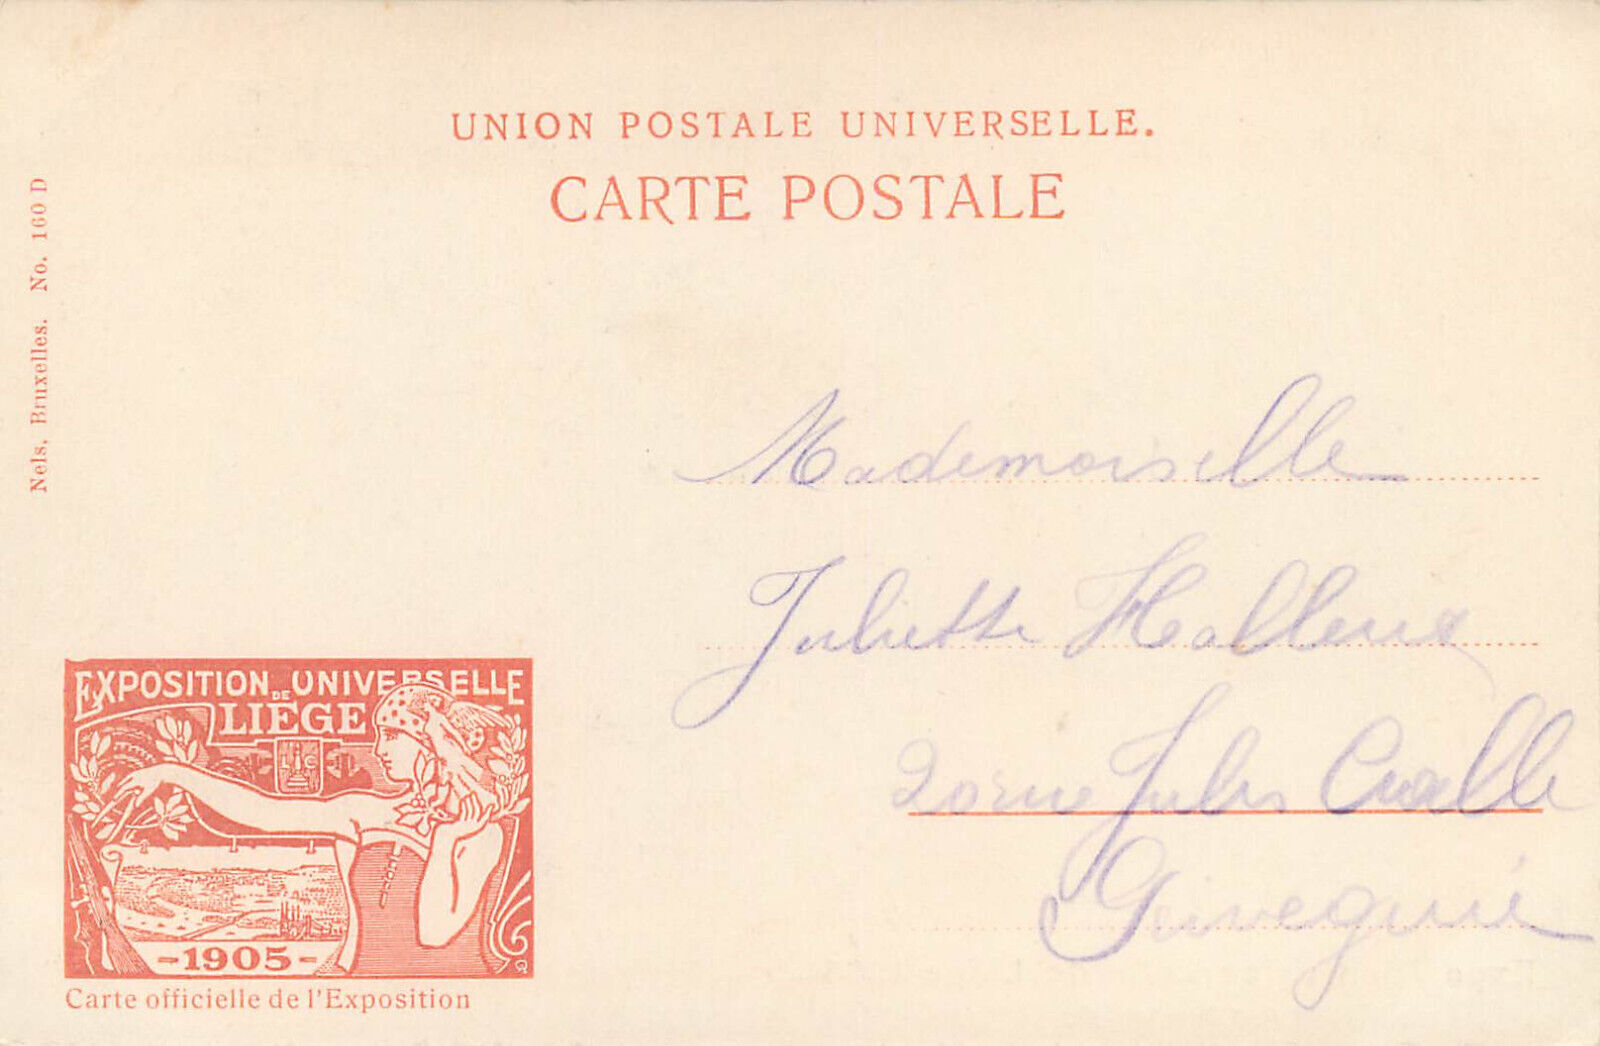 UNION POSTALE UNIVERSELLE.
CARTE POSTALE
Nels, Bruxelles. No. 160 D
Mademoiselle
Juliette Halleux
20 rue Jules Cralle
Grivegnée
EXPOSITION UNIVERSELLE
DE
LIÉGE
L C
-1905-
Carte officielle de l'Exposition